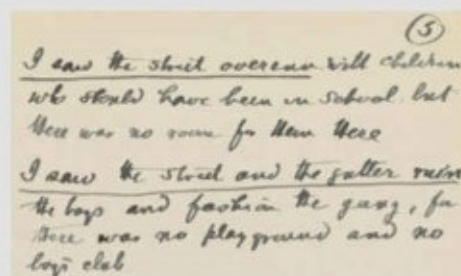 5
I saw the street overrun with children
who should have been in school, but
there was no room for them there
I saw the street and the gutter ruin
the boys and fashion the gang, for
there was no playground and no
boys club